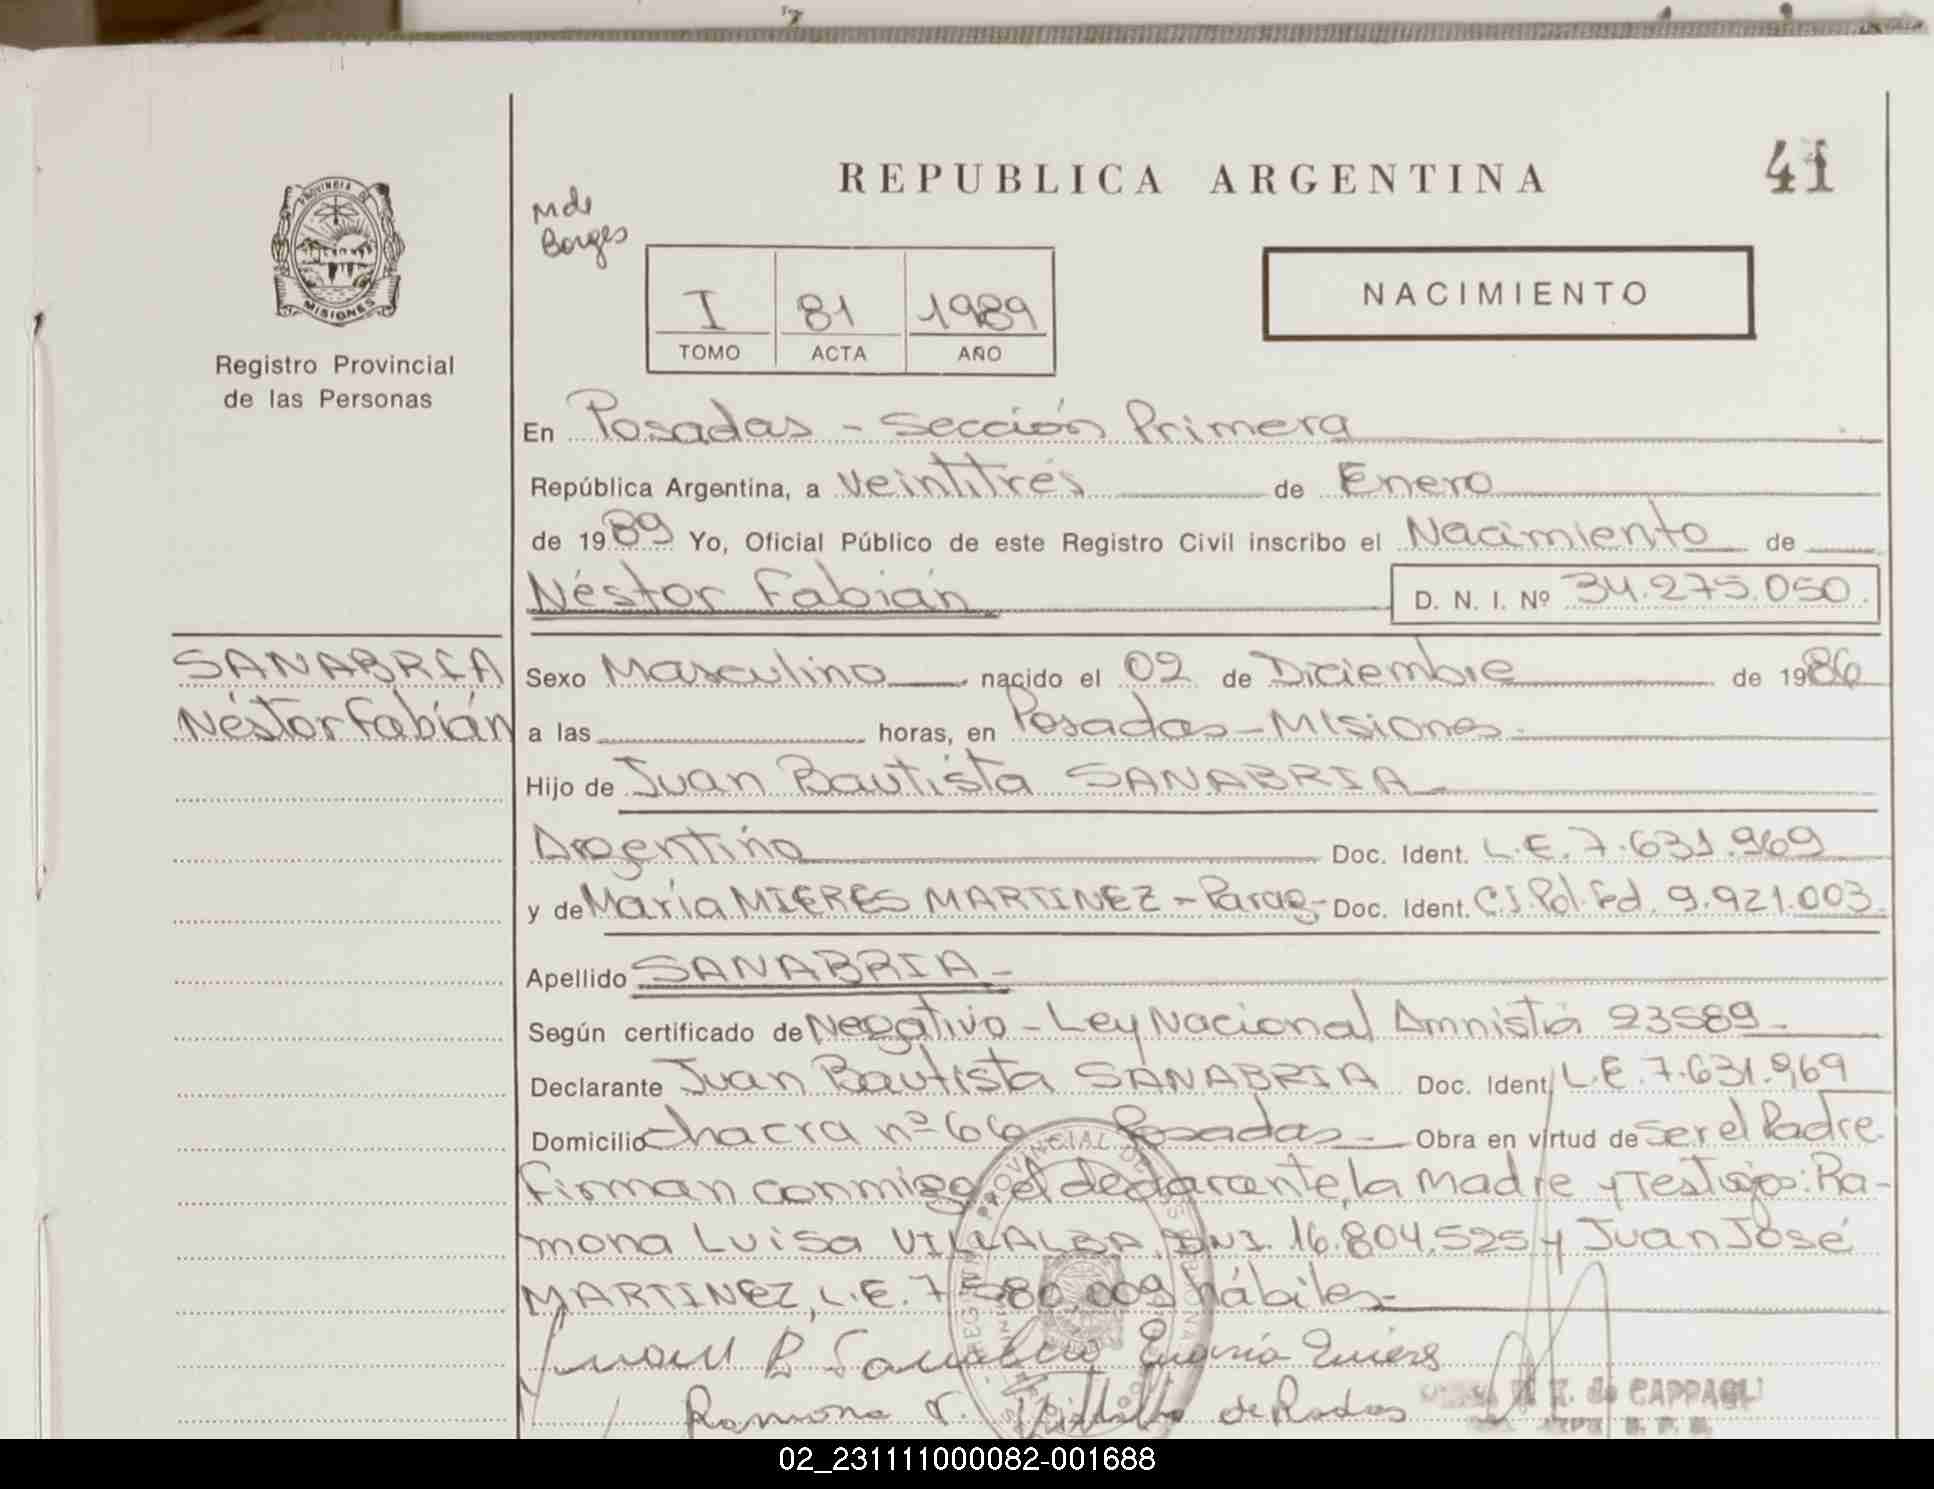 REPUBLICA ARGENTINA
41
PROVINCIA DE
MISIONES
Registro Provincial
de las Personas
M de
Borges
I 81 1989
TOMO ACTA AÑO
NACIMIENTO
En Posadas - Sección Primera
República Argentina, a veintitrés de Enero
de 1989 Yo, Oficial Público de este Registro Civil inscribo el Nacimiento de
Néstor Fabián D. N. I. Nº 34.275.050.
SANABRIA
Néstor Fabián
Sexo Masculino nacido el 02 de Diciembre de 1986
a las horas, en Posadas - Misiones
Hijo de Juan Bautista SANABRIA
Argentino Doc. Ident. L.E. 7.631.969
y de María MIERES MARTINEZ - Parag- Doc. Ident. C.I Pol. Fed. 9.921.003
Apellido SANABRIA-
Según certificado de Negativo - Ley Nacional Amnistia 23589-
Declarante Juan Bautista SANABRIA Doc. Ident L.E. 7.631.969
Domicilio chacra nº 66 Posadas- Obra en virtud de ser el Padre
firman conmigo, el declarante, la madre y Testigos: Ra-
mona Luisa VILLALBA, DNI. 16.804.525 y Juan José
MARTINEZ, L.E. 7.580.009 hábiles-
Juan B Sanabria María
Ramona de Rodas
de CAPPAGLI
02_231111000082-001688